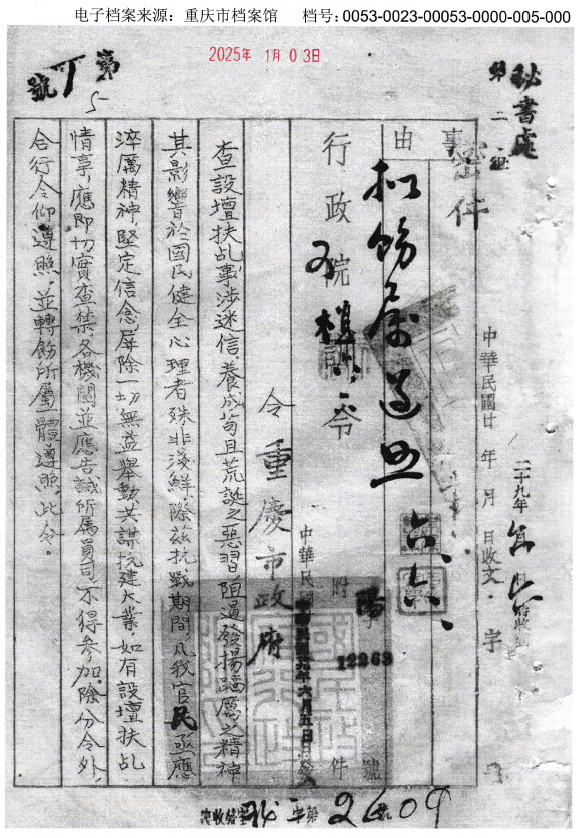 电子档案来源：重庆市档案馆　档号：0053-0023-00053-0000-005-000
2025年 1月 03日
秘書處
第二
第
號
5
密件
事
由
擬飭屬遵照
六.六.
中華民國廿 年 月 日收文 字
二十九年
行政院
令
陽
附
件
號
12263
中華民國廿九年六月五日
令重慶市政府
查設壇扶乩事涉迷信，養成苟且荒誕之惡習，阻遏發揚蹈厲之精神
其影響於國民健全心理者殊非淺鮮，際茲抗戰期間，凡我官民亟應
淬厲精神，堅定信念，屏除一切無益舉動，共謀抗建大業，如有設壇扶乩
情事，應即切實查禁，各機關並應告誡所屬員司不得參加。除分令外，
合行令仰遵照，並轉飭所屬一體遵照。此令。
字第
2609